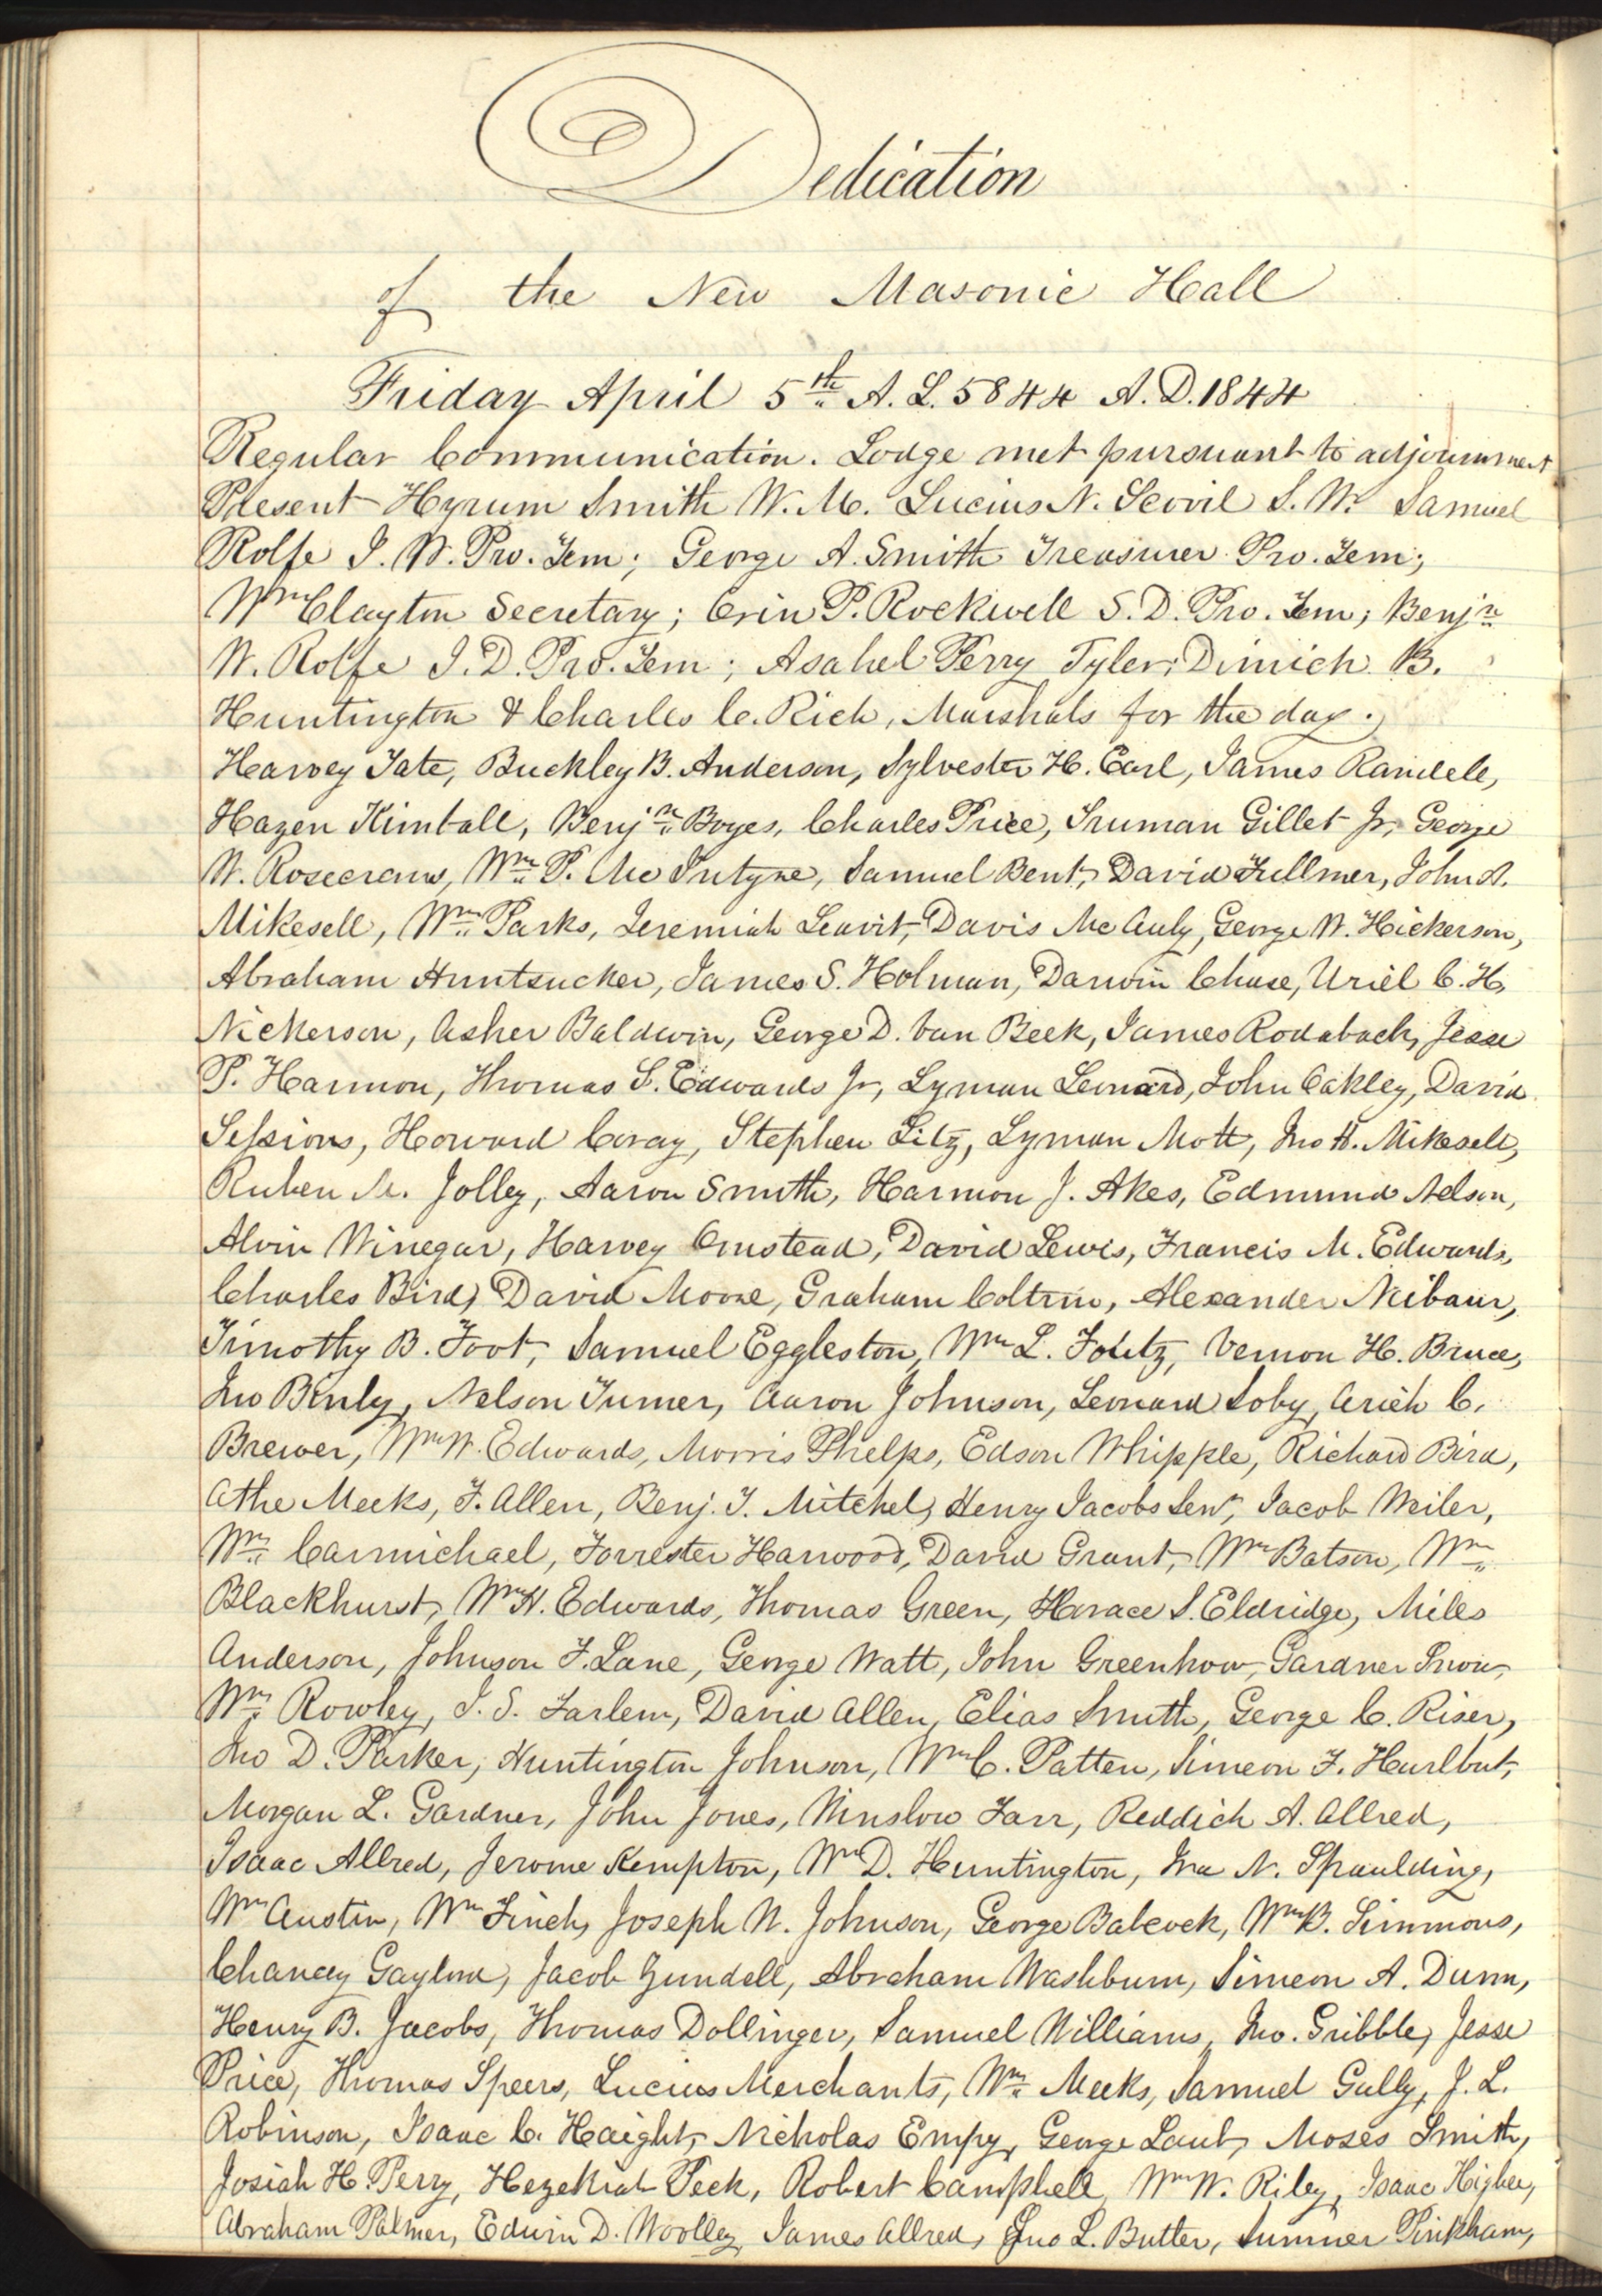 Dedication
of the New Masonic Hall
Friday April 5th A. L. 5844 A. D. 1844
Regular Communication. Lodge met pursuant to adjournment
Present Hyrum Smith W. M. Lucius N. Scovil S. W. Samuel
Rolfe J. W. Pro. Tem; George A. Smith Treasurer Pro. Tem;
Wm Clayton Secretary; Orin P. Rockwell S. D. Pro. Tem; Benjn
W. Rolfe J. D. Pro. Tem; Asahel Perry Tyler; Dimich B.
Huntington & Charles C. Rich, Marshals for the day.
Harvey Tate, Buckley B. Anderson, Sylvester H. Earl, James Randele,
Hazen Kimball, Benjn Boyes, Charles Price, Truman Gillet Jr, George
W. Rosecrans, Wm P. McIntyre, Samuel Bent, David Fullmer, John A.
Mikesell, Wm Parks, Jeremiah Leavit, Davis McAuly, George W. Hickerson,
Abraham Huntsucker, James S. Holman, Darwin Chase, Uriel C. H.
Nickerson, Asher Baldwin, George D. Van Beek, James Rodaback, Jesse
P. Harmon, Thomas S. Edwards Jr, Lyman Leonard, John Oakley, David
Sessions, Howard Coray, Stephen Litz, Lyman Mott, Jno H. Mikesell,
Ruben M. Jolley, Aaron Smith, Harmon J. Akes, Edmund Nelson,
Alvin Winegar, Harvey Omstead, David Lewis, Francis M. Edwards,
Charles Bird, David Moore, Graham Coltrin, Alexander Neibaur,
Timothy B. Foot, Samuel Eggleston, Wm L. Foutz, Vernon H. Bruce,
Jno Binly, Nelson Turner, Aaron Johnson, Leonard Soby, Arieh C.
Brewer, Wm W. Edwards, Morris Phelps, Edson Whipple, Richard Bird,
Athe Meeks, F. Allen, Benj. T. Mitchel, Henry Jacobs Senr, Jacob Weiler,
Wm Carmichael, Forrester Harwood, David Grant, Wm Batson, Wm
Blackhurst, Wm H. Edwards, Thomas Green, Horace S. Eldridge, Miles
Anderson, Johnson F. Lane, George Watt, John Greenhow, Gardner Snow,
Wm Rowley, J. S. Farlem, David Allen, Elias Smith, George C. Riser,
Jno D. Parker, Huntington Johnson, Wm C. Patten, Simeon F. Hurlbut,
Morgan L. Gardner, John Jones, Winslow Farr, Reddich A. Allred,
Isaac Allred, Jerome Kempton, Wm D. Huntington, Ira N. Spaulding,
Wm Austin, Wm Finch, Joseph W. Johnson, George Babcock, Wm B. Simmons,
Chancy Gaylord, Jacob Zundell, Abraham Washburn, Simeon A. Dunn,
Henry B. Jacobs, Thomas Dollinger, Samuel Williams, Jno. Gribble, Jesse
Price, Thomas Speers, Lucius Merchants, Wm Meeks, Samuel Gully, J. L.
Robinson, Isaac C. Haight, Nicholas Empy, George Laub, Moses Smith,
Josiah H. Perry, Hezekiah Peck, Robert Campbell, Wm W. Riley, Isaac Higbee,
Abraham Palmer, Edwin D. Woolley, James Allred, Jno L. Butler, Sumner Pinkham,